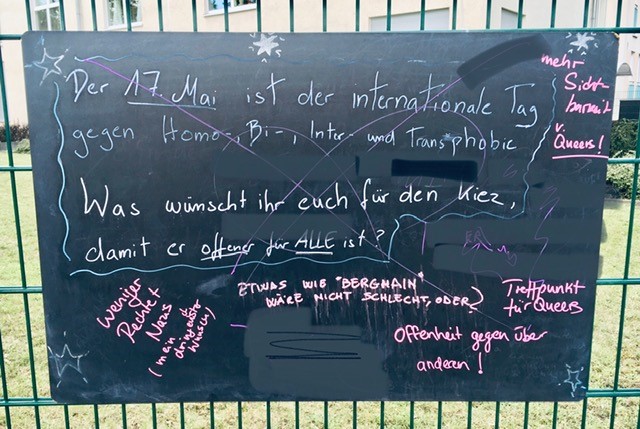 Der 17. Mai ist der internationale Tag
gegen Homo-, Bi-, Inter- und Transphobie
Was wünscht ihr euch für den Kiez,
damit er offener für ALLE ist?
mehr
Sicht-
barkeit
v.
Queers!
weniger
Rechte &
Nazis
(mein
dringendster
Wunsch)
ETWAS WIE "BERGHAIN"
WÄRE NICHT SCHLECHT, ODER?
Treffpunkt
für Queers
Offenheit gegen über
anderen!